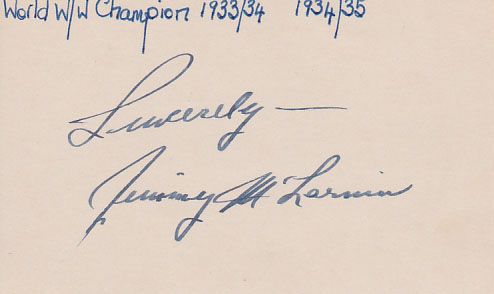 World W/W Champion 1933/34 1934/35
Sincerely —
Jimmy Mc Larnin